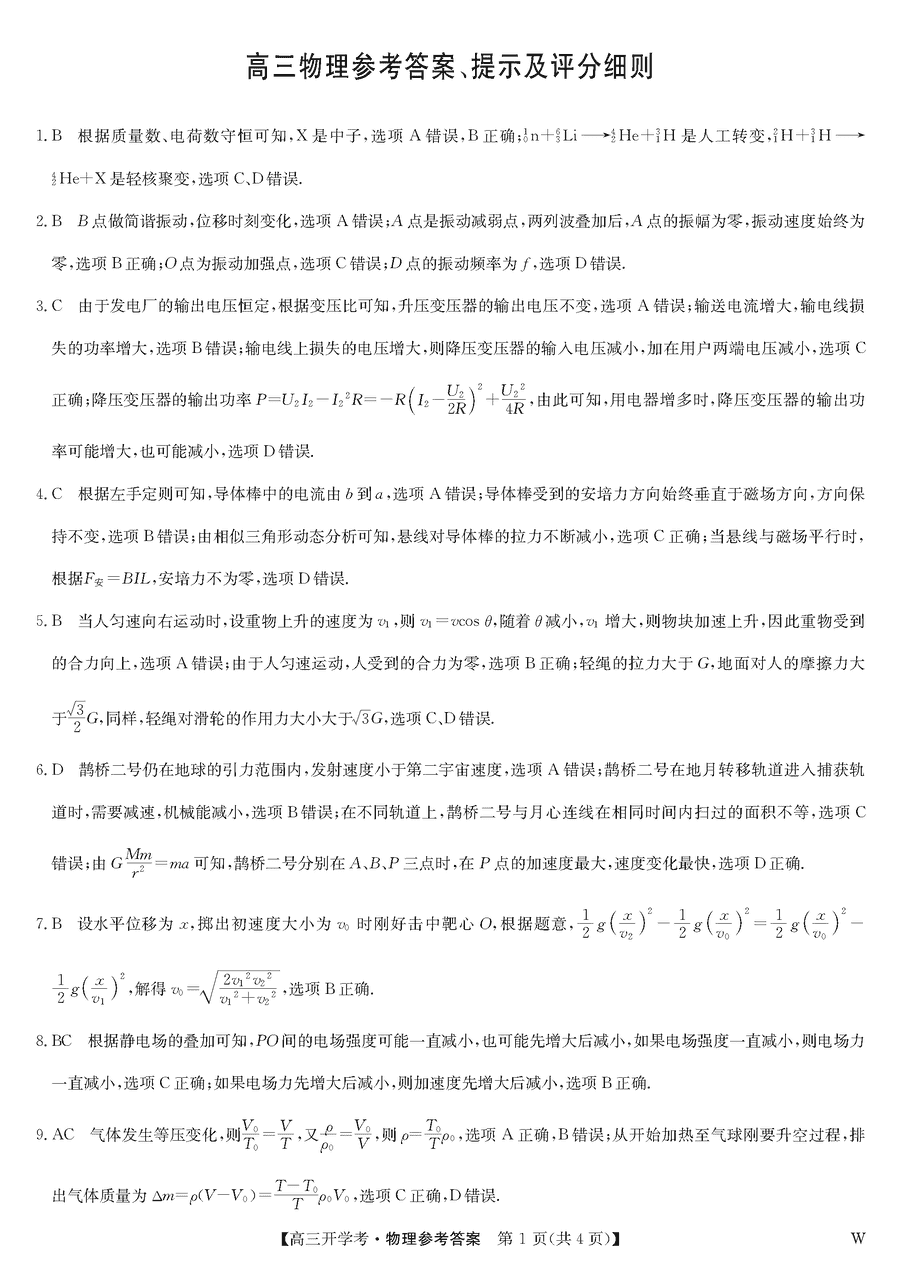 高三物理参考答案、提示及评分细则
1. B　根据质量数、电荷数守恒可知,X 是中子,选项 A 错误,B 正确;¹₀n+⁶₃Li⟶⁴₂He+³₁H 是人工转变,²₁H+³₁H⟶
⁴₂He+X 是轻核聚变,选项 C、D 错误.
2. B　B 点做简谐振动,位移时刻变化,选项 A 错误;A 点是振动减弱点,两列波叠加后,A 点的振幅为零,振动速度始终为
零,选项 B 正确;O 点为振动加强点,选项 C 错误;D 点的振动频率为 f,选项 D 错误.
3. C　由于发电厂的输出电压恒定,根据变压比可知,升压变压器的输出电压不变,选项 A 错误;输送电流增大,输电线损
失的功率增大,选项 B 错误;输电线上损失的电压增大,则降压变压器的输入电压减小,加在用户两端电压减小,选项 C
正确;降压变压器的输出功率 P=U₂I₂-I₂²R=-R(I₂-U₂/2R)²+U₂²/4R,由此可知,用电器增多时,降压变压器的输出功
率可能增大,也可能减小,选项 D 错误.
4. C　根据左手定则可知,导体棒中的电流由 b 到 a,选项 A 错误;导体棒受到的安培力方向始终垂直于磁场方向,方向保
持不变,选项 B 错误;由相似三角形动态分析可知,悬线对导体棒的拉力不断减小,选项 C 正确;当悬线与磁场平行时,
根据F安=BIL,安培力不为零,选项 D 错误.
5. B　当人匀速向右运动时,设重物上升的速度为 v₁,则 v₁=vcos θ,随着 θ 减小,v₁ 增大,则物块加速上升,因此重物受到
的合力向上,选项 A 错误;由于人匀速运动,人受到的合力为零,选项 B 正确;轻绳的拉力大于 G,地面对人的摩擦力大
于√3/2 G,同样,轻绳对滑轮的作用力大小大于√3G,选项 C、D 错误.
6. D　鹊桥二号仍在地球的引力范围内,发射速度小于第二宇宙速度,选项 A 错误;鹊桥二号在地月转移轨道进入捕获轨
道时,需要减速,机械能减小,选项 B 错误;在不同轨道上,鹊桥二号与月心连线在相同时间内扫过的面积不等,选项 C
错误;由 G Mm/r²=ma 可知,鹊桥二号分别在 A、B、P 三点时,在 P 点的加速度最大,速度变化最快,选项 D 正确.
7. B　设水平位移为 x,掷出初速度大小为 v₀ 时刚好击中靶心 O,根据题意,1/2 g(x/v₂)²-1/2 g(x/v₀)²=1/2 g(x/v₀)²-
1/2 g(x/v₁)²,解得 v₀=√(2v₁²v₂²/(v₁²+v₂²)),选项 B 正确.
8. BC　根据静电场的叠加可知,PO 间的电场强度可能一直减小,也可能先增大后减小,如果电场强度一直减小,则电场力
一直减小,选项 C 正确;如果电场力先增大后减小,则加速度先增大后减小,选项 B 正确.
9. AC　气体发生等压变化,则V₀/T₀=V/T,又ρ/ρ₀=V₀/V,则 ρ=T₀/T ρ₀,选项 A 正确,B 错误;从开始加热至气球刚要升空过程,排
出气体质量为 Δm=ρ(V-V₀)=(T-T₀)/T ρ₀V₀,选项 C 正确,D 错误.
【高三开学考·物理参考答案　第 1 页(共 4 页)】　W